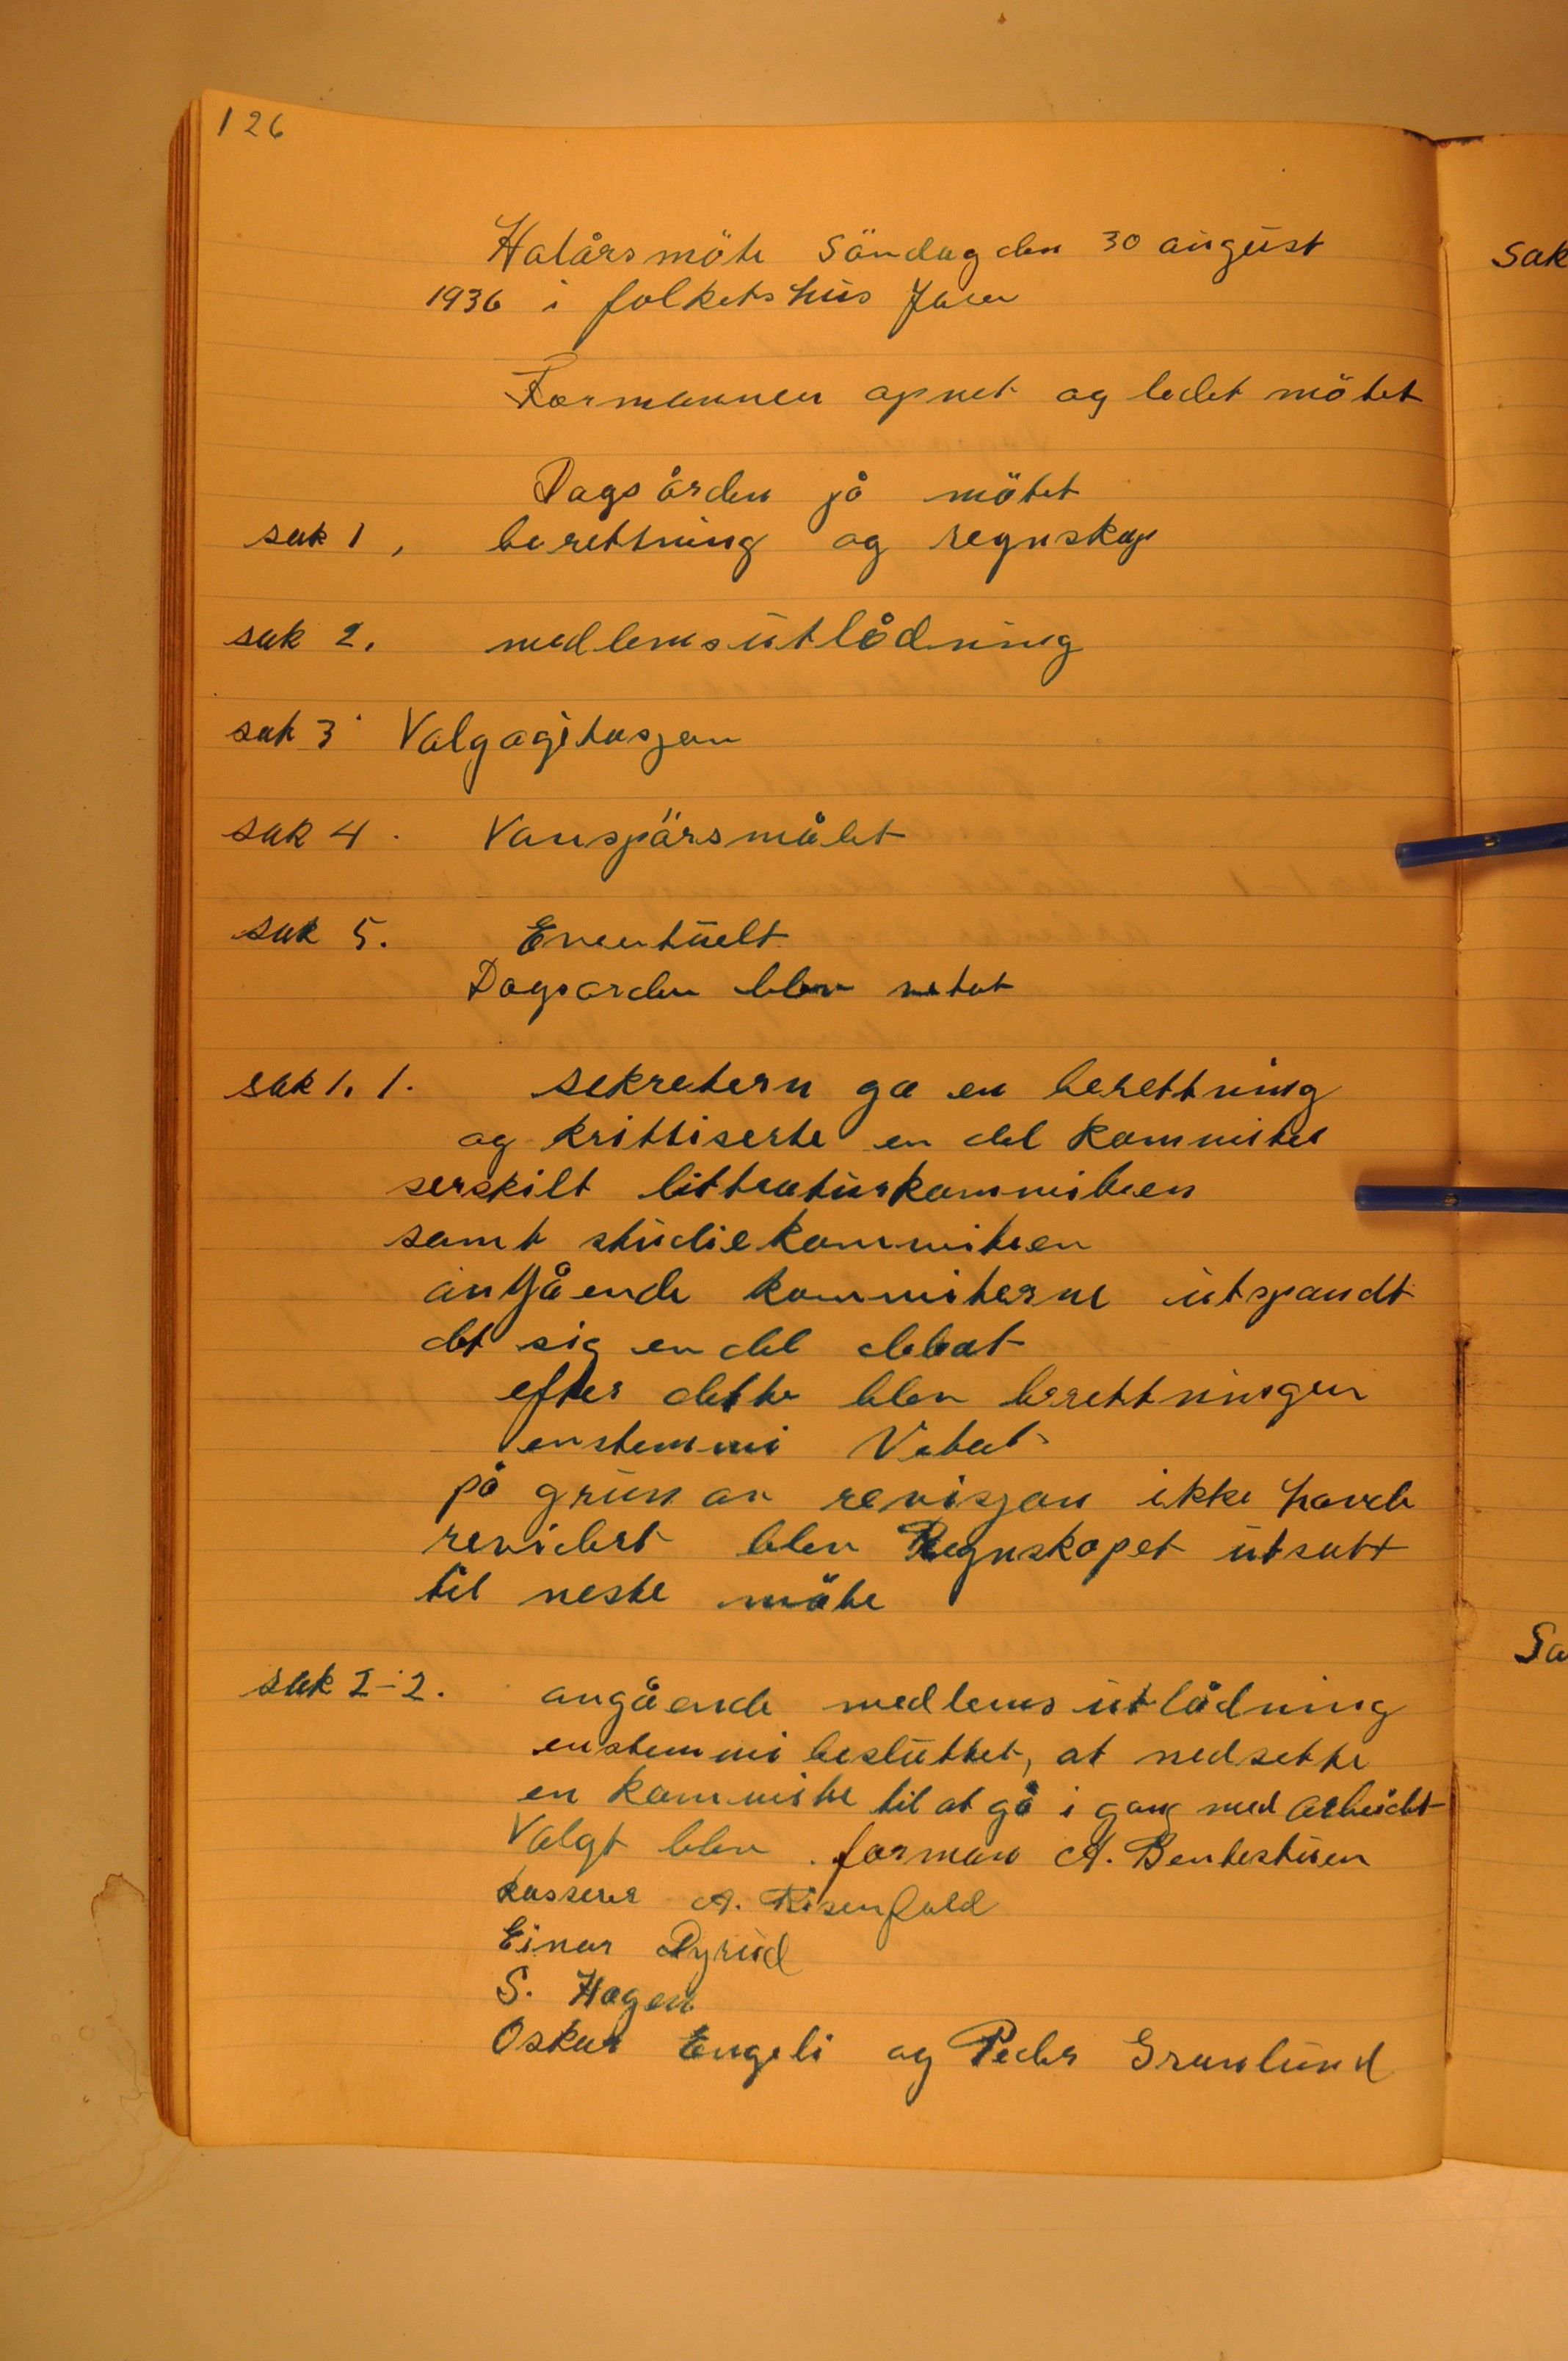 126
Halårsmöte Söndag den 30 august
1936 i folkets hus Jaren
Formannen apnet og ledet mötet
Dagsården på mötet
sak 1, berettning og regnskap
sak 2. medlemsutlådning
sak 3. Valgagitasjon
sak 4. Vanspörsmålet
sak 5. Eventuelt
Dagsorden blev vetat
sak 1. 1. sekretern ga en berettning
og krittiserte en del kommiteer
serskilt litteraturkommiteen
samt studiekommiteen
angående kommiterne utspandt
det sig en del debat
efter dette blev berettningen
enstemmi Vetat
på grun av revisjon ikke havde
revidert blev Regnskapet utsatt
til neste möte
sak 2-2. angående medlemsutlådning
enstemmi besluttet, at nedsette
en kommite til at gå i gang med arbeidet
Valgt blev forman A. Bentestuen
kasserer A. Risenfald
Einar Dyrud
S. Hagen
Oskar Engeli og Peder Granlund
Sak
Sa